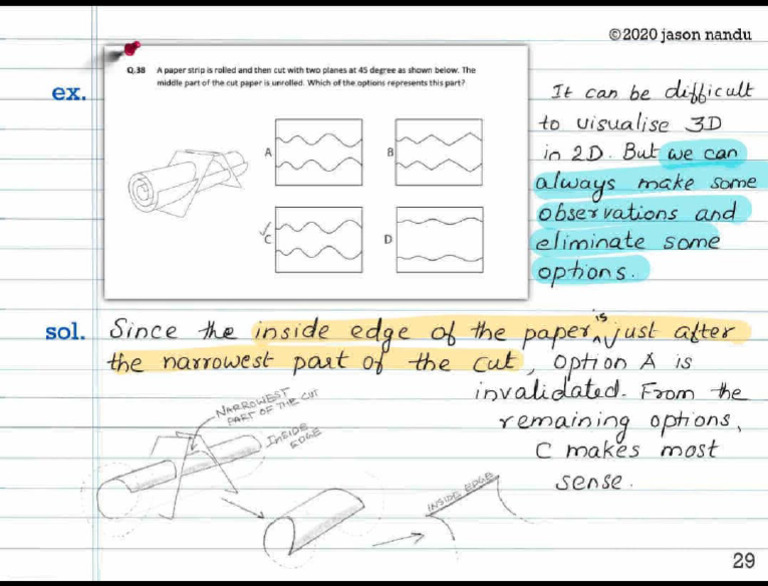 ©2020 jason nandu
Q.38 A paper strip is rolled and then cut with two planes at 45 degree as shown below. The
middle part of the cut paper is unrolled. Which of the options represents this part?
ex.
A
B
C
D
It can be difficult
to visualise 3D
in 2D. But we can
always make some
observations and
eliminate some
options.
sol. Since the inside edge of the paper is just after
the narrowest part of the cut, option A is
invalidated. From the
remaining options,
C makes most
sense.
NARROWEST
PART OF THE CUT
INSIDE
EDGE
INSIDE EDGE
29